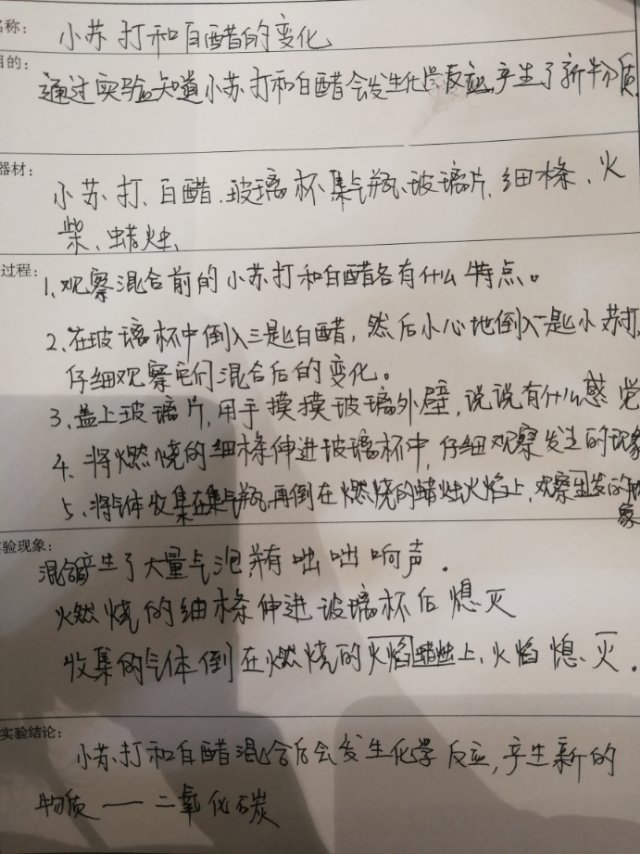 名称: 小苏打和白醋的变化
目的: 通过实验知道小苏打和白醋会发生化学反应,产生了新物质
器材: 小苏打、白醋、玻璃杯、集气瓶、玻璃片、细木条、火
柴、蜡烛、
过程: 1、观察混合前的小苏打和白醋各有什么特点。
2、在玻璃杯中倒入三匙白醋，然后小心地倒入一匙小苏打,
仔细观察它们混合后的变化。
3、盖上玻璃片,用手摸摸玻璃外壁,说说有什么感觉
4、将燃烧的细木条伸进玻璃杯中,仔细观察发生的现象
5、将气体收集在集气瓶,再倒在燃烧的蜡烛火焰上,观察发生的现
象
实验现象:
混合产生了大量气泡并有咄咄响声.
燃烧的细木条伸进玻璃杯后熄灭
收集的气体倒在燃烧的火焰蜡烛上、火焰熄灭.
实验结论:
小苏打和白醋混合后会发生化学反应,产生新的
物质——二氧化碳